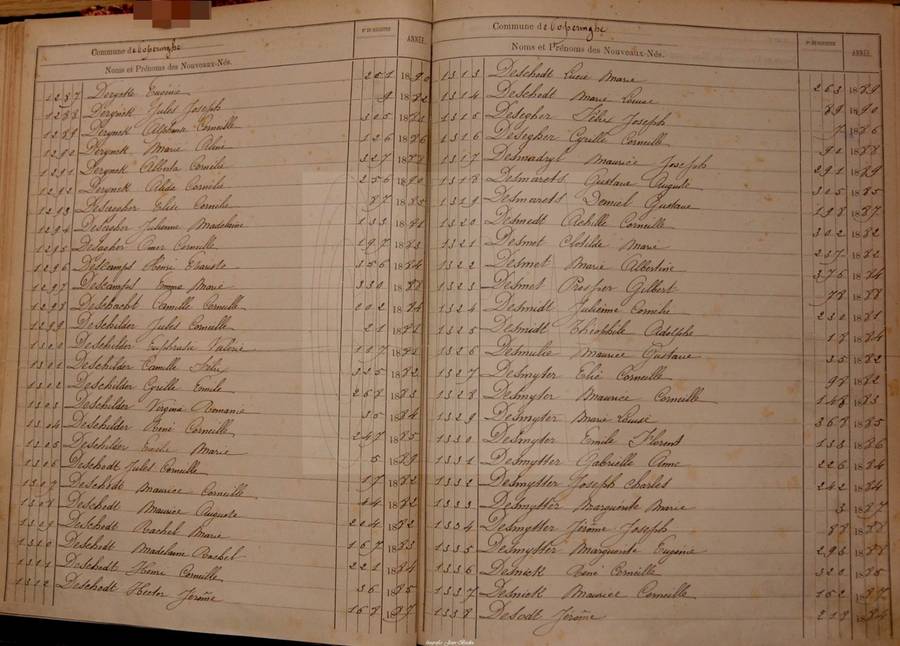 Commune de Poperinghe
Nos DU REGISTRE
ANNÉE
Noms et Prénoms des Nouveaux-Nés.
1287 Derycke Eugénie 201 1890
1288 Derynck Jules Joseph 9 1882
1289 Derynck Alphonse Corneille 305 1883
1290 Derynck Marie Aline 126 1886
1291 Derynck Alberta Cornélie 327 1888
1292 Derynck Alida Cornélie 256 1890
1293 Desaegher Elise Cornélie 87 1885
1294 Desaegher Julienne Madelaine 133
1295 Desaegher Omer Corneille 197 1883
1296 Descamps Henri Evariste 356 1884
1297 Descamps Emma Marie 330 1888
1298 Deschacht Camille Corneille 202 1884
1299 Deschilder Jules Corneille 21
1300 Deschilder Euphrasie Valérie 107
1301 Deschilder Camille Félix 325 1882
1302 Deschilder Cyrille Emile 268 1883
1303 Deschilder Virginie Romanie 35 1884
1304 Deschilder René Corneille 247 1885
1305 Deschilder Marie 5 1889
1306 Deschodt Jules Corneille 17 1882
1307 Deschodt Maurice Corneille 44 1882
1308 Deschodt Maurice Auguste 204 1882
1309 Deschodt Rachel Marie 167 1883
1310 Deschodt Madelaine Rachel 221 1884
1311 Deschodt Henri Corneille 36 1885
1312 Deschodt Hector Jérôme 168 1887
Commune de Poperinghe
Nos DU REGISTRE
ANNÉE
Noms et Prénoms des Nouveaux-Nés.
1313 Deschodt Lucie Marie 263 1889
1314 Deschodt Marie Louise 89 1890
1315 Desegher Félix Joseph 7 1886
1316 Desegher Cyrille Corneille 92 1888
1317 Desmadryl Maurice Joseph 291 1889
1318 Desmarets Gustave Auguste 305 1885
1319 Desmarets Daniel Gustave 198 1887
1320 Desmedt Achille Corneille 302 1882
1321 Desmet Clotilde Marie 237 1882
1322 Desmet Marie Albertine 376 1884
1323 Desmet Prosper Gilbert 78 1888
1324 Desmidt Julienne Cornélie 230 1881
1325 Desmidt Théophile Adolphe 18 1884
1326 Desmulie Maurice Gustave 35 1882
1327 Desmyter Elie Corneille 98 1882
1328 Desmyter Maurice Corneille 148 1883
1329 Desmyter Marie Louise 368 1885
1330 Desmyter Emile Florent 133 1886
1331 Desmytter Gabrielle Anne 226 1884
1332 Desmytter Joseph Charles 242 1884
1333 Desmytter Marguerite Marie 3 1887
1334 Desmytter Jérôme Joseph 88 1888
1335 Desmytter Marguerite Eugénie 293 1888
1336 Desnick René Corneille 320 1885
1337 Desnick Maurice Corneille 162 1887
1338 Desodt Jérôme 213 1884